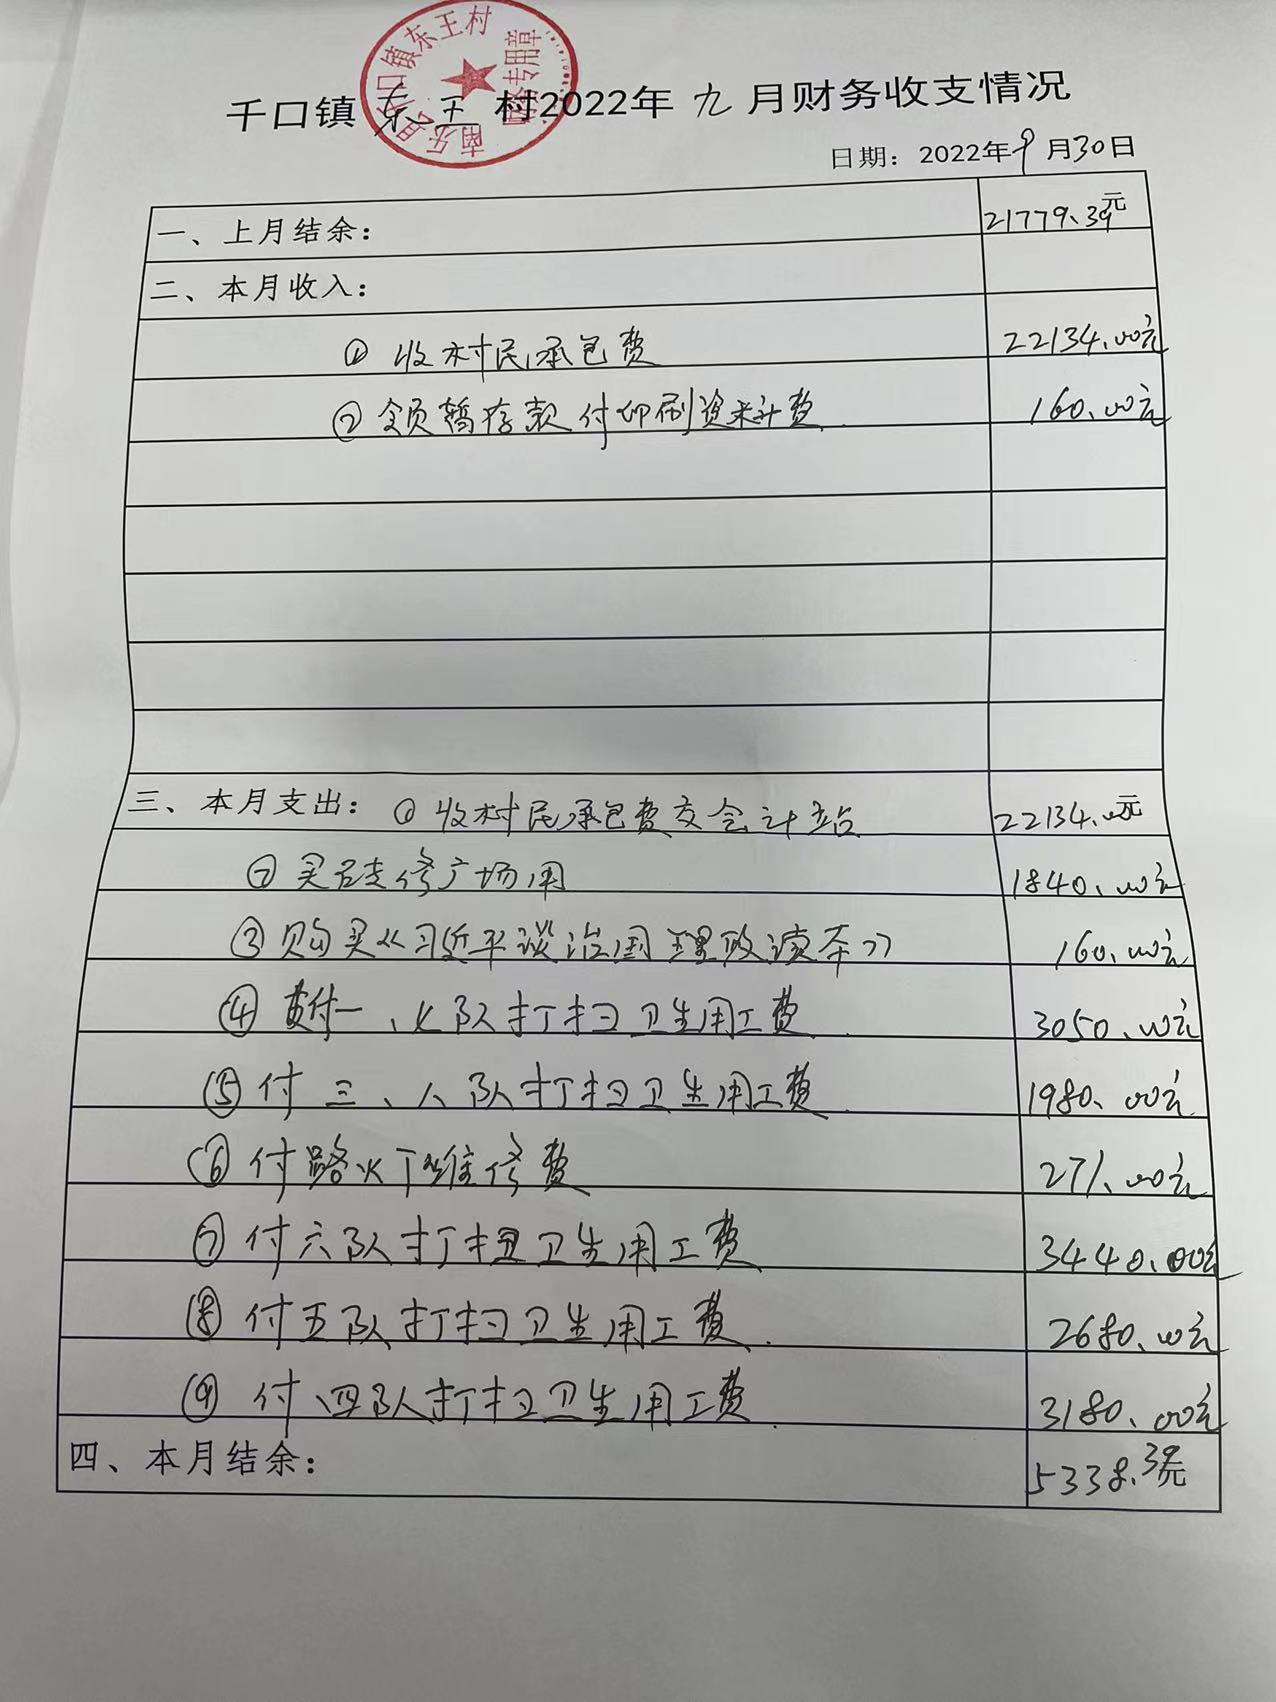 南乐县千口镇东王村
专用章
千口镇东王村2022年九月财务收支情况
日期：2022年9月30日
一、上月结余： 21779.39元
二、本月收入：
① 收村民承包费 22134.00元
② 领暂存款付印刷资料费 160.00元
三、本月支出：① 收村民承包费交会计站 22134.00元
② 买砖修广场用 1840.00元
③ 购买《习近平谈治国理政读本》 160.00元
④ 付一、七队打扫卫生用工费 3050.00元
⑤ 付三、八队打扫卫生用工费 1980.00元
⑥ 付路灯维修费 271.00元
⑦ 付六队打扫卫生用工费 3440.00元
⑧ 付五队打扫卫生用工费 2680.00元
⑨ 付四队打扫卫生用工费 3180.00元
四、本月结余： 5338.39元